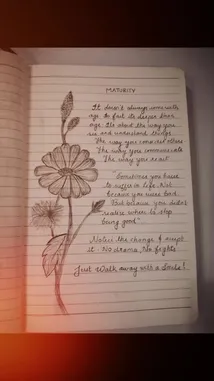 MATURITY
It doesn't always come with
age. In fact its deeper than
age. Its about the way you
see and understand things
The way you connect others
The way you communicate
The way you react.
"Sometimes you have
to suffer in life. Not
because you were bad.
But because you didn't
realise when to stop
being good"
Notice the change & accept
it. No drama, No fights
Just Walk away with a Smile!